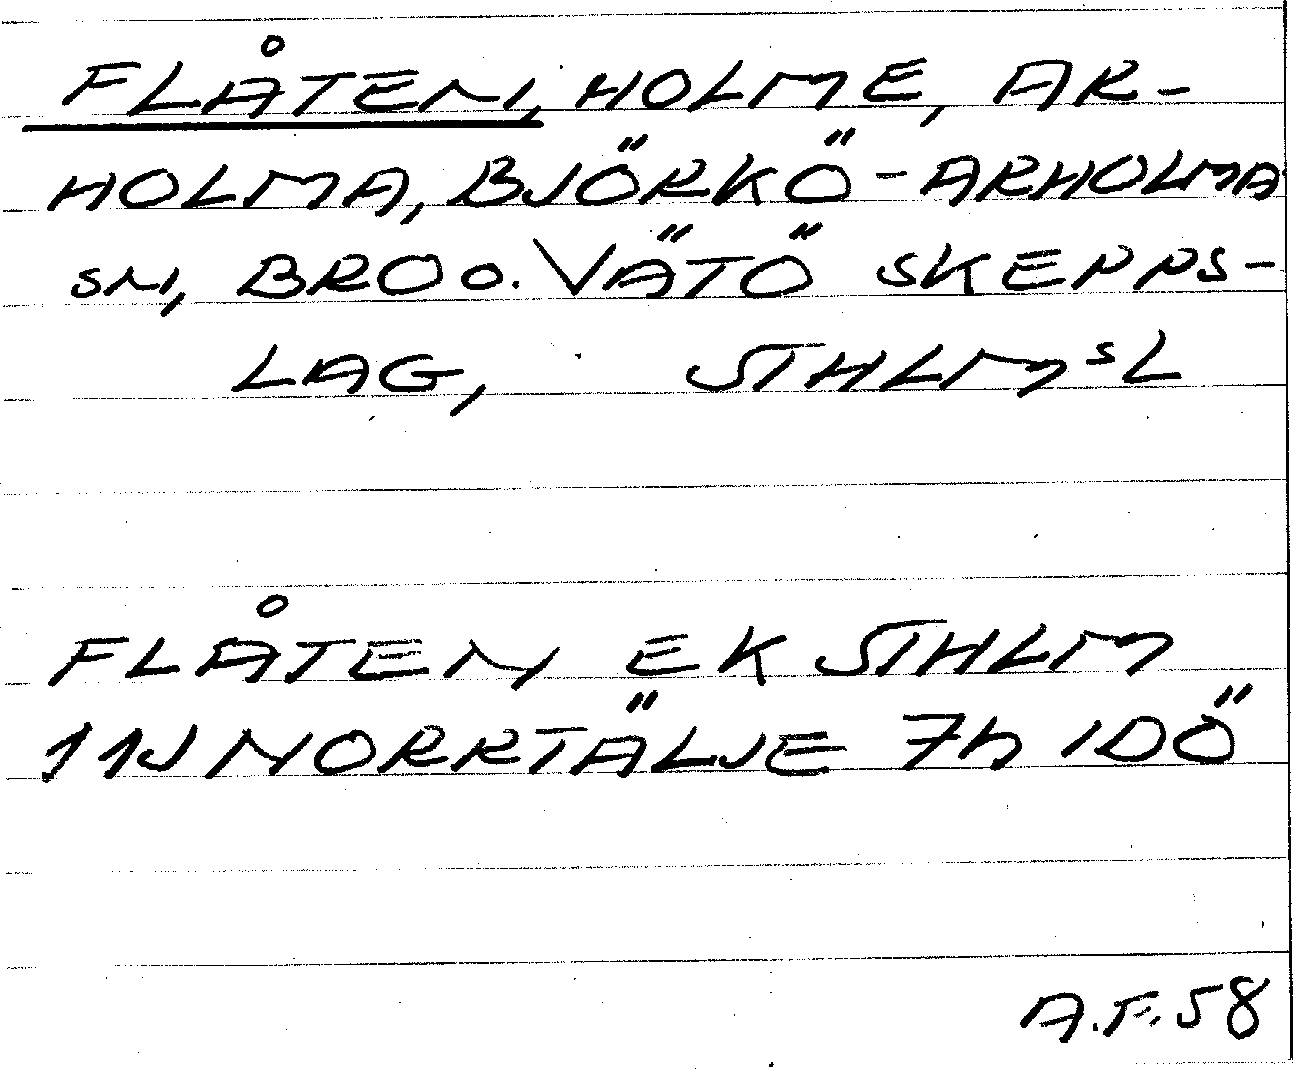 FLÅTEN, HOLME, AR-
HOLMA, BJÖRKÖ-ARHOLMA
SN, BRO O. VÄTÖ SKEPPS-
LAG, STHLMSL
FLÅTEN EK STHLM
11J NORRTÄLJE 7h IDÖ
A.F. 58